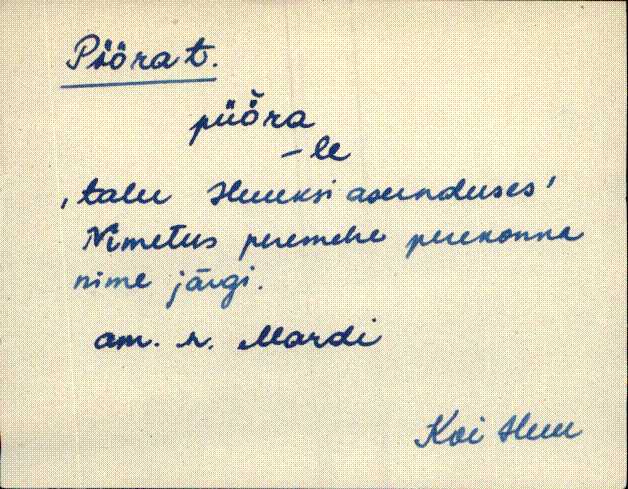 Pööra t.
püöra
- le
'talu Huuksi asunduses'
Nimetus peremehe perekonna
nime järgi.
am. n. Mardi
Koi Huu